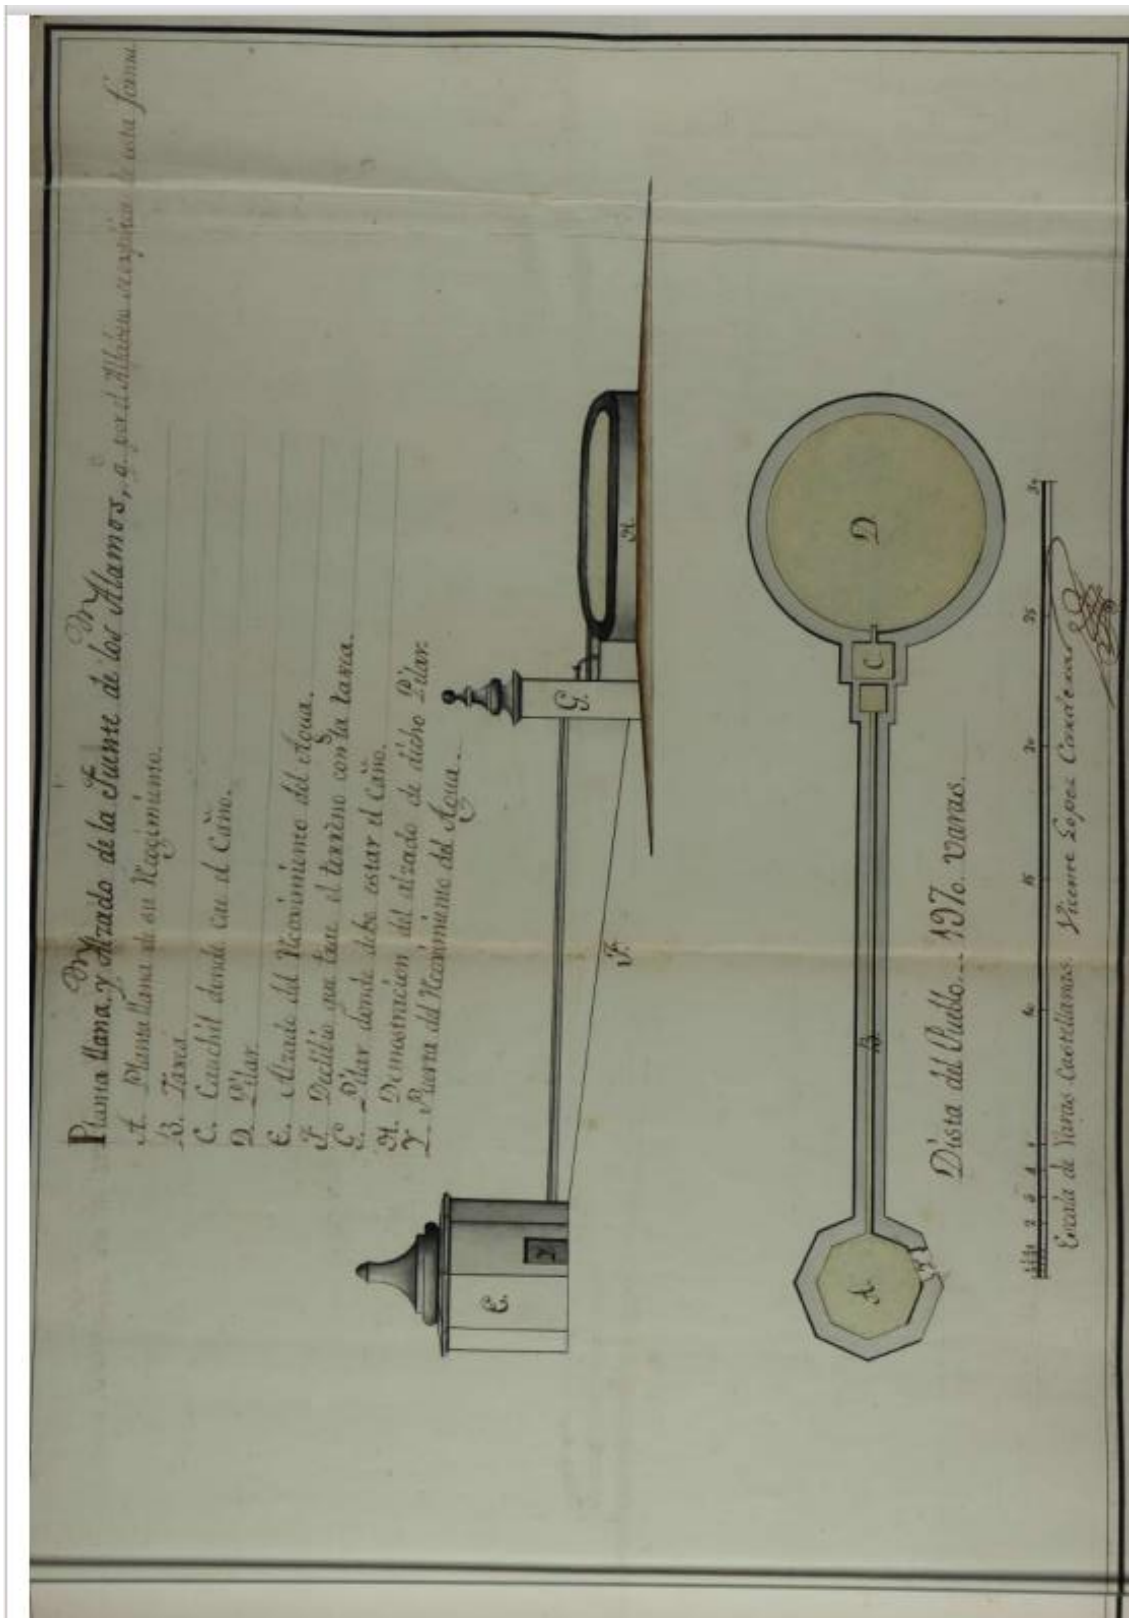 Planta llana, y Alzado de la Fuente de los Alamos, q. por el de esta forma
A. Planta llana de su Recogimiento.
B. Taxea.
C. Cauchil donde cae el Caño.
D. Pilar.
E. Alzado del Recovimiento del Agua.
F. Declibio que tiene el terreno con la taxea.
G. Pilar donde debe estar el Caño.
H. Demostracion del alzado de dicho Pilar.
Y. Puerta del Recovimiento del Agua.
E.
Y
F.
G.
H.
A.
Y
B.
C
D
Dista del Pueblo... 1970. varas.
1 2 3 4 5 10 15 20 25 30
Escala de Varas Castellanas. Vicente Lopez Cardenas